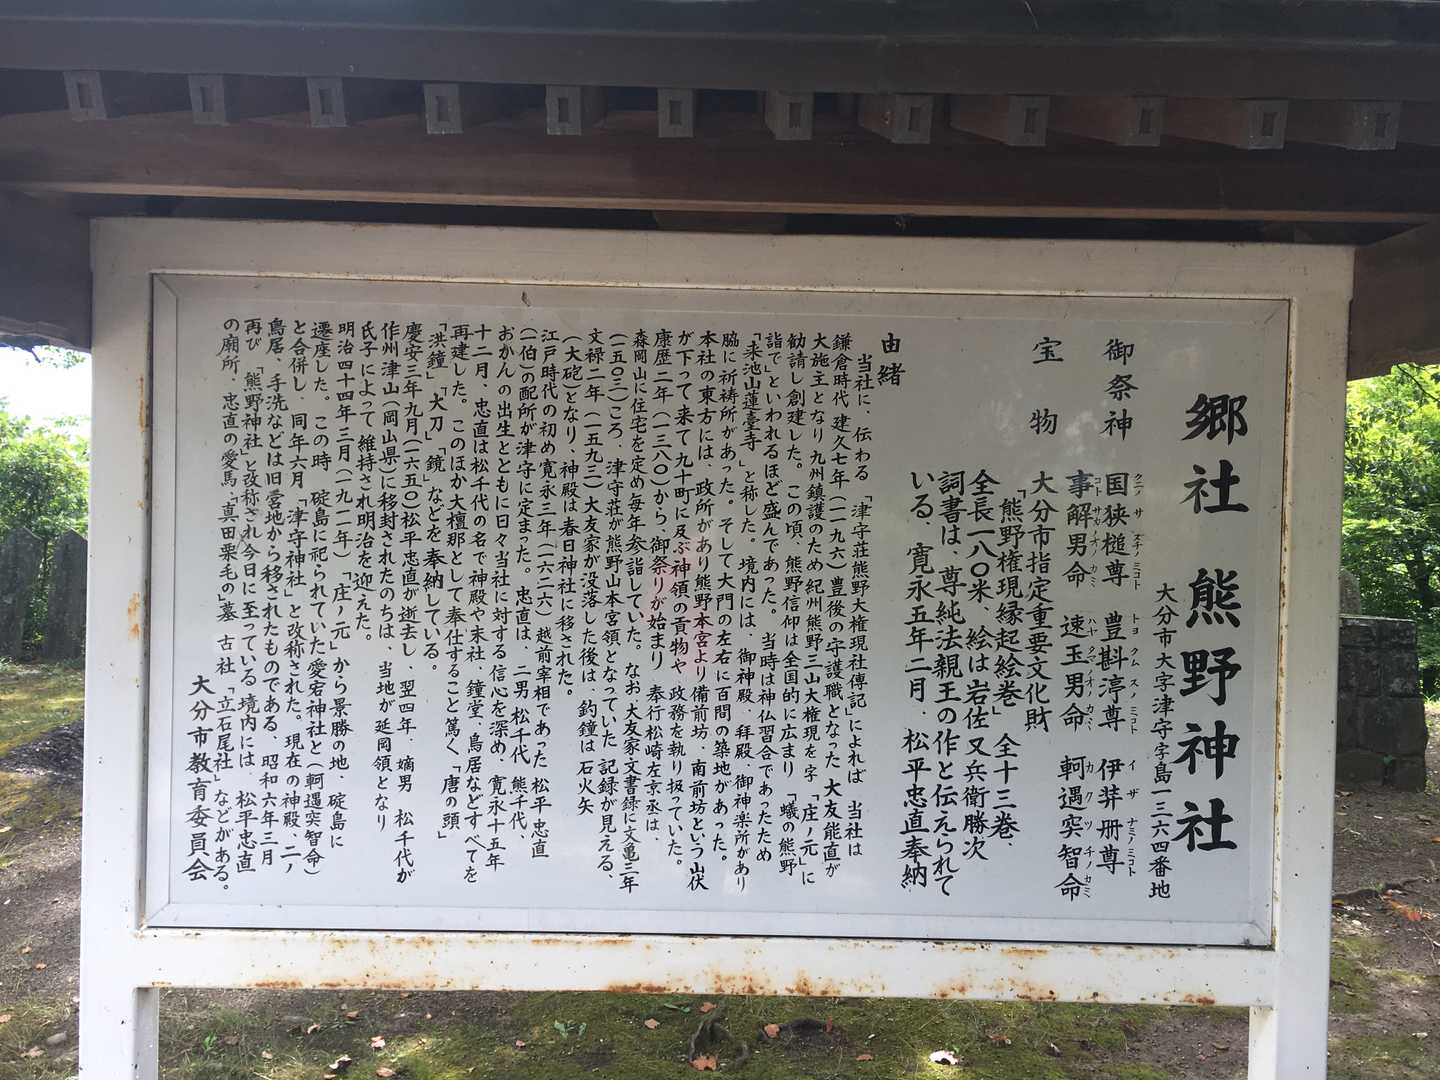 郷社 熊野神社
大分市大字津守字島一三六四番地
御祭神 国狭槌尊 豊斟渟尊 伊弉冊尊
クニノ サ ヅチノミコト トヨ クム ヌノミコト イザ ナミノミコト
事解男命 速玉男命 軻遇突智命
コトサカノオノカミ ハヤタマノオノカミ カクツチノカミ
宝物 大分市指定重要文化財
「熊野権現縁起絵巻」 全十三巻、
全長一八〇米、絵は岩佐又兵衛勝次
詞書は、尊純法親王の作と伝えられて
いる、寛永五年二月、松平忠直奉納
由緒
当社に、伝わる「津守荘熊野大権現社傳記」によれば 当社は
鎌倉時代 建久七年(一一九六)豊後の守護職となった 大友能直が
大施主となり九州鎮護のため紀州熊野三山大権現を字「庄ノ元」に
勧請し創建した。この頃、熊野信仰は全国的に広まり 「蟻の熊野
詣で」といわれるほど盛んであった。当時は神仏習合であったため
「来池山蓮臺寺」と称した。境内には、御神殿、拝殿、御神楽所があり
脇に祈祷所があった。そして大門の左右に百間の築地があった。
本社の東方には、政所があり熊野本宮より備前坊、南前坊という山伏
が下って来て九十町に及ぶ神領の貢物や 政務を執り扱っていた。
康歴二年(一三八〇)から、御祭りが始まり 奉行松崎左京丞は、
森岡山に住宅を定め毎年参詣していた。なお 大友家文書録に文亀三年
(一五〇三)ころ、津守荘が熊野山本宮領となっていた 記録が見える、
文禄二年(一五九三)大友家が没落した後は、釣鐘は石火矢
(大砲)となり、神殿は春日神社に移された。
江戸時代の初め寛永三年(一六二六)越前宰相であった 松平忠直
(一伯)の配所が津守に定まった。忠直は、二男 松千代 熊千代、
おかんの出生とともに日々当社に対する信心を深め、寛永十五年
十二月、忠直は松千代の名で神殿や末社、鐘堂、鳥居などすべてを
再建した。このほか大檀那として奉仕すること篤く、「唐の頭」
「洪鐘」「大刀」「鏡」などを奉納している。
慶安三年九月(一六五〇)松平忠直が逝去し、翌四年、嫡男 松千代が
作州津山(岡山県)に移封されたのちは、当地が延岡領となり
氏子によって 維持され明治を迎えた。
明治四十四年三月(一九一一年)「庄ノ元」から景勝の地、碇島に
遷座した。この時 碇島に祀られていた愛宕神社と(軻遇突智命)
と合併し、同年六月「津守神社」と改称された。現在の神殿、二ノ
鳥居、手洗などは旧営地から移されたものである、昭和六年三月
再び「熊野神社」と改称され今日に至っている、境内には、松平忠直
の廟所、忠直の愛馬「真田栗毛の」墓 古社「立石尾社」などがある。
大分市教育委員会